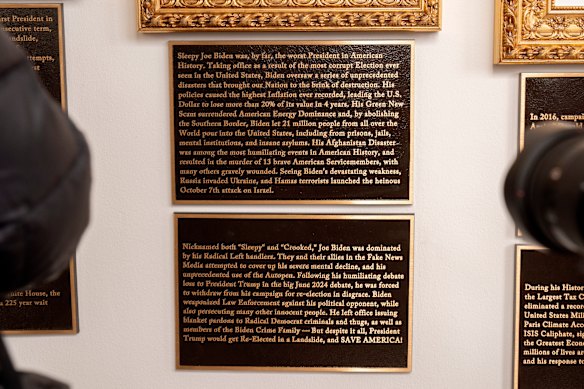 rst President in
secutive term,
ndslide,
ttempts,
ite House, the
a 225 year wait
Sleepy Joe Biden was, by far, the worst President in American
History. Taking office as a result of the most corrupt Election ever
seen in the United States, Biden oversaw a series of unprecedented
disasters that brought our Nation to the brink of destruction. His
policies caused the highest Inflation ever recorded, leading the U.S.
Dollar to lose more than 20% of its value in 4 years. His Green New
Scam surrendered American Energy Dominance and, by abolishing
the Southern Border, Biden let 21 million people from all over the
World pour into the United States, including from prisons, jails,
mental institutions, and insane asylums. His Afghanistan Disaster
was among the most humiliating events in American History, and
resulted in the murder of 13 brave American Servicemembers, with
many others gravely wounded. Seeing Biden's devastating weakness,
Russia invaded Ukraine, and Hamas terrorists launched the heinous
October 7th attack on Israel.
Nicknamed both "Sleepy" and "Crooked," Joe Biden was dominated
by his Radical Left handlers. They and their allies in the Fake News
Media attempted to cover up his severe mental decline, and his
unprecedented use of the Autopen. Following his humiliating debate
loss to President Trump in the big June 2024 debate, he was forced
to withdraw from his campaign for re-election in disgrace. Biden
weaponized Law Enforcement against his political opponent, while
also persecuting many other innocent people. He left office issuing
blanket pardons to Radical Democrat criminals and thugs, as well as
members of the Biden Crime Family — But despite it all, President
Trump would get Re-Elected in a Landslide, and SAVE AMERICA!
In 2016, campai
During his Histor
the Largest Tax C
eliminated a recor
United States Mil
Paris Climate Acco
ISIS Caliphate, sig
the Greatest Econo
millions of lives ar
and his response to